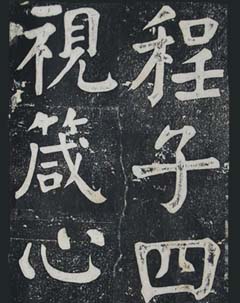 程子四
視箴心